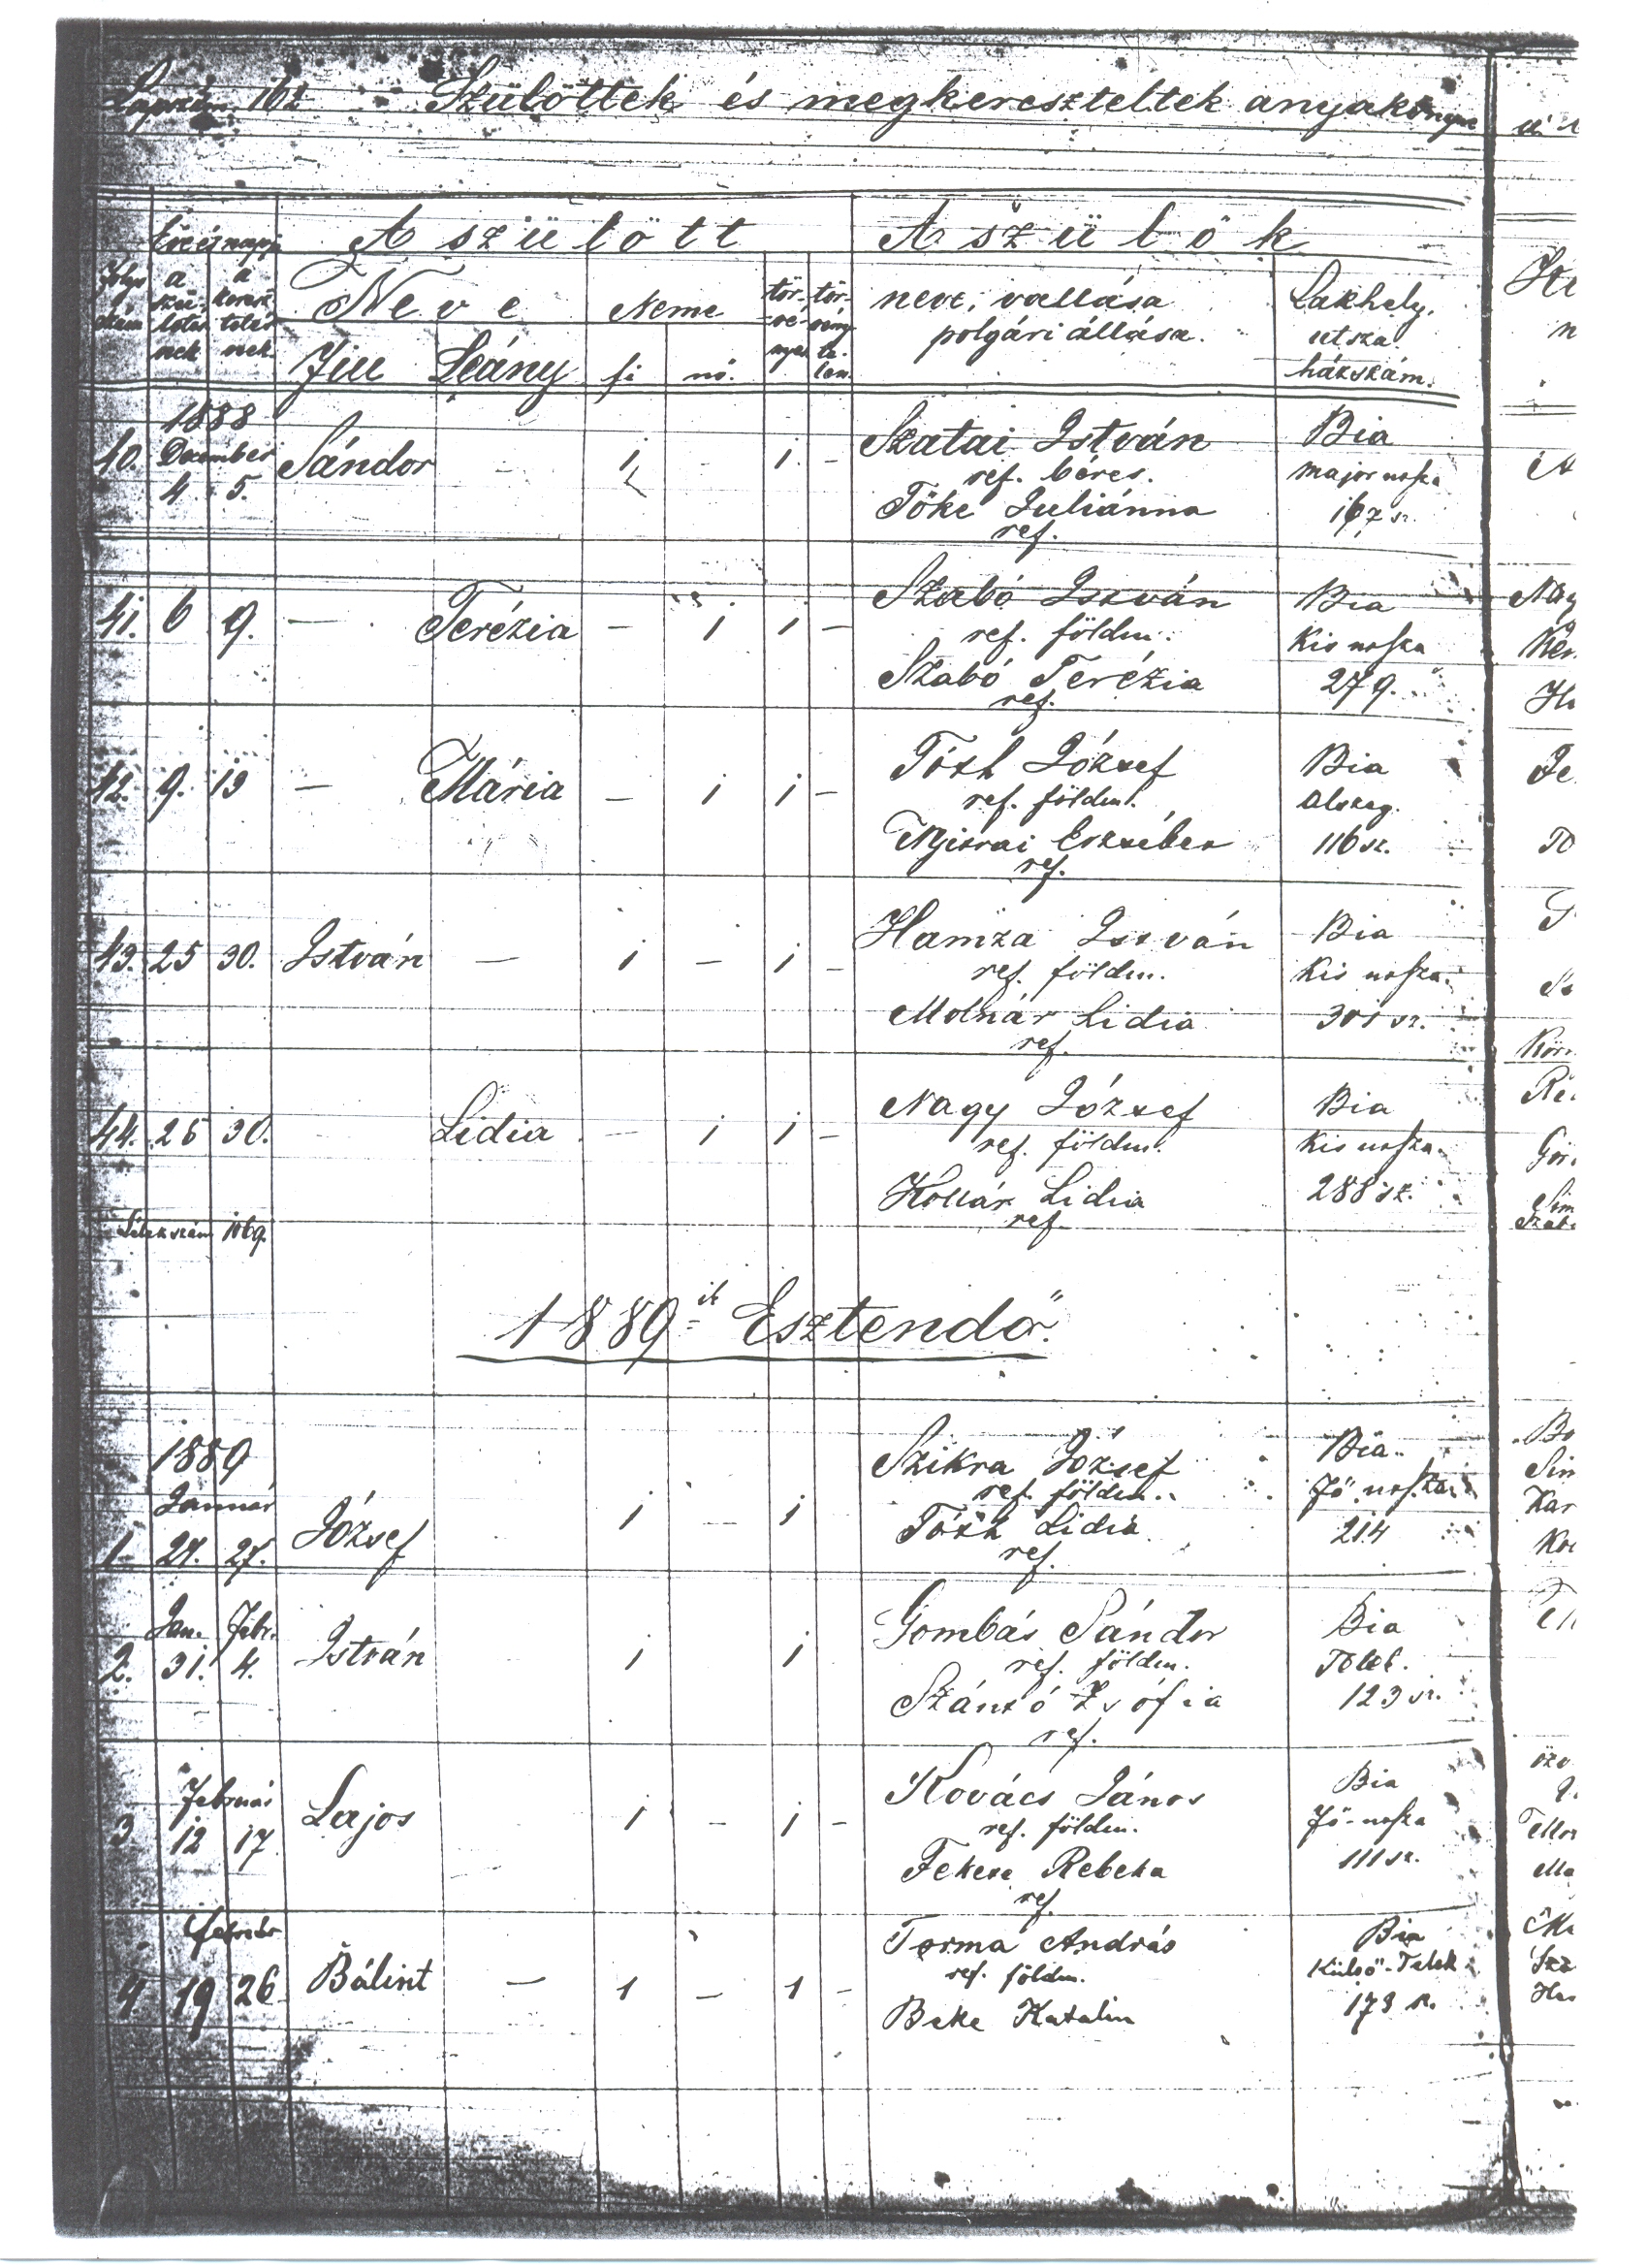 Lapszám 162 Szülöttek és megkereszteltek anyakönyve
Éve és napja A szülött A szülők
folyó szám a szü-letés nek a keresz telés nek. Neve Neme tör-vé-nyes tör-vény te-len neve, vallása polgári állása. Lakhely, utsza házszám.
Fiu Leány fi nő.
1888
December
40. 4 5. Sándor - 1 - 1. - Szatai István Bia
ref. béres. major utsza
Tőke Juliánna 167 sz.
ref.
41. 6 9. — Terézia — 1 1 — Szabó István Bia
ref. földm. Kis utsza
Szabó Terézia 279.
ref.
42. 9. 13 — Mária — 1 1 — Tóth József Bia
ref. földm. Alszeg.
Nyitrai Erzsébet 116 sz.
ref.
43. 25 30. István — 1 — 1 — Hamza István Bia
ref. földm. Kis utsza.
Molnár Lidia 301 sz.
ref.
44. 25 30. Lidia — 1 1 — Nagy József Bia
ref. földm. Kis utsza.
Kollár Lidia 288 sz.
ref
Lélekszám 1069.
1889-ik Esztendő.
1889
Január
1. 27. 27. József 1 — 1 Szikra József Bia
ref. földm. Fő utsza
Tóth Lidia 214
ref.
Jan. Febr.
2. 31. 4. István 1 1 Gombás Sándor Bia
ref. földm.
Szántó Zsófia 123 sz.
ref.
Február
3 12 17 Lajos - 1 - 1 - Kovács János Bia
ref. földm. Fő-utsza
Fekete Rebeka 111 sz.
ref.
február
4 19 26 Bálint — 1 — 1 - Torma András Bia
ref. földm. Külső-Telek
Beke Katalin 173 sz.